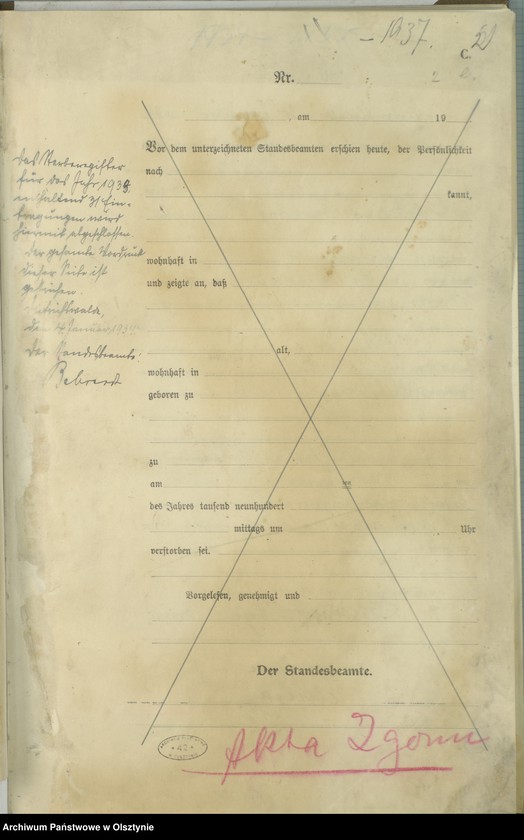 – 1937.
C.
Nr.
am 19
Vor dem unterzeichneten Standesbeamten erschien heute, der Persönlichkeit
nach
kannt,
wohnhaft in
und zeigte an, daß
alt,
wohnhaft in
geboren zu
zu
am ten
des Jahres tausend neunhundert
mittags um Uhr
verstorben sei.
Vorgelesen, genehmigt und
Der Standesbeamte.
Das Sterberegister
für das Jahr 1938
enthaltend 31 Ein-
tragungen wird
hiermit abgeschlossen.
Der gesamte Vordruck
dieser Seite ist
gestrichen.
den 4. Januar 193
Der Standesbeamte.
Akta Zgonu
42
Archiwum Państwowe w Olsztynie